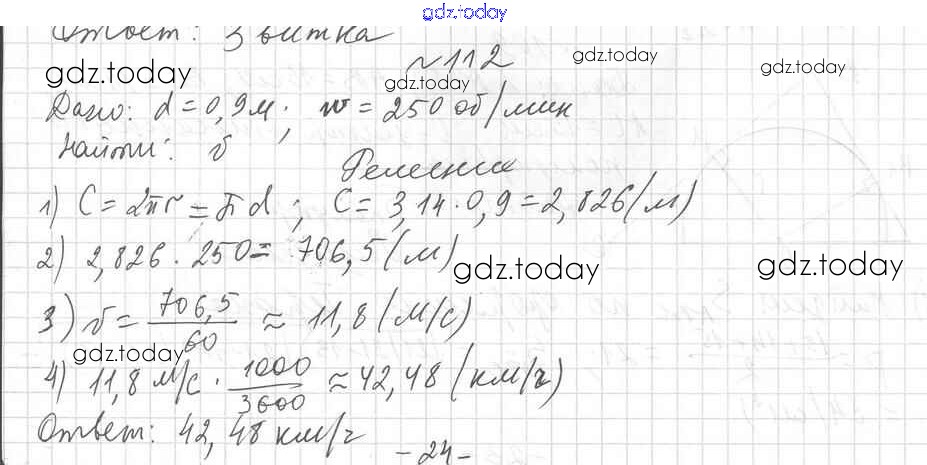 gdz.today
Ответ: 3 витка
№112
gdz.today gdz.today gdz.today gdz.today
Дано: d = 0,9 м; w = 250 об/мин
Найти: v
Решение
1) C = 2πr = πd; C = 3,14 · 0,9 = 2,826 (м)
2) 2,826 · 250 = 706,5 (м)
gdz.today gdz.today
3) v = 706,5/60 ≈ 11,8 (м/с)
gdz.today
4) 11,8 м/с · 1000/3600 ≈ 42,48 (км/ч)
Ответ: 42,48 км/ч
- 24 -